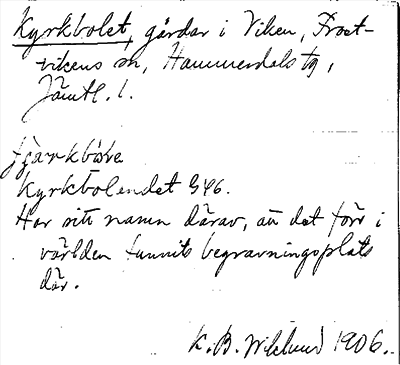 Kyrkbolet, gårdar i Viken, Frost-
vikens sn, Hammerdals tg,
Jämtl. l.
Kyrkbolandet GEC.
Har sitt namn därav, att det förr i
världen funnits begravningsplats
där.
K. B. Wiklund 1906.